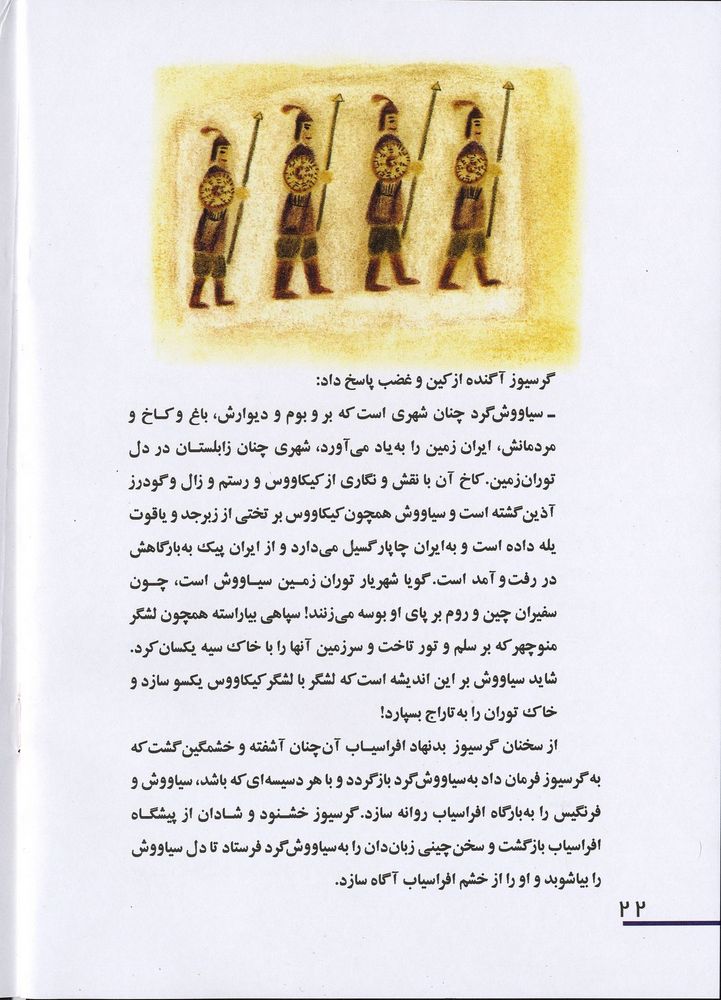 گرسیوز آگنده از کین و غضب پاسخ داد:
ـ سیاووش‌گرد چنان شهری است که بر و بوم و دیوارش، باغ و کاخ و
مردمانش، ایران زمین را به یاد می‌آورد، شهری چنان زابلستان در دل
توران‌زمین. کاخ آن با نقش و نگاری از کیکاووس و رستم و زال و گودرز
آذین گشته است و سیاووش همچون کیکاووس بر تختی از زبرجد و یاقوت
یله داده است و به ایران چاپار گسیل می‌دارد و از ایران پیک به بارگاهش
در رفت و آمد است. گویا شهریار توران زمین سیاووش است، چون
سفیران چین و روم بر پای او بوسه می‌زنند! سپاهی بیاراسته همچون لشگر
منوچهر که بر سلم و تور تاخت و سرزمین آنها را با خاک سیه یکسان کرد.
شاید سیاووش بر این اندیشه است که لشگر با لشگر کیکاووس یکسو سازد و
خاک توران را به تاراج بسپارد!
از سخنان گرسیوز بدنهاد افراسیاب آن‌چنان آشفته و خشمگین گشت که
به گرسیوز فرمان داد به سیاووش‌گرد بازگردد و با هر دسیسه‌ای که باشد، سیاووش و
فرنگیس را به بارگاه افراسیاب روانه سازد. گرسیوز خشنود و شادان از پیشگاه
افراسیاب بازگشت و سخن‌چینی زبان‌دان را به سیاووش‌گرد فرستاد تا دل سیاووش
را بیاشوبد و او را از خشم افراسیاب آگاه سازد.
۲۲